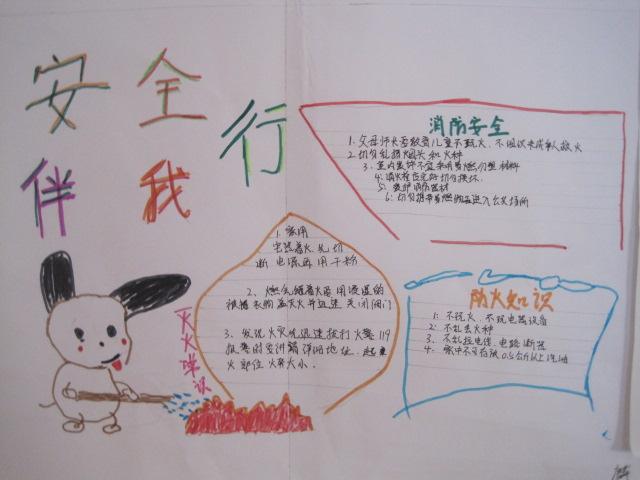 安全
行
伴我
消防安全
1、父母师长要教育儿童不玩火、不
2、切勿乱扔烟头和火种
3、室内装饰不宜采用易燃 材料
4、消火栓 切勿
5、爱护消防器材
6、切勿携带易燃 进入公共场所
1、家用
电器着火、先切
断电源再用干粉
2、燃气罐着火要用浸湿的
被褥衣物 灭火并迅速关闭阀门
3、发现火灾迅速拨打火警119
报警时要讲清详细地址、起火
火部位 火势大小.
灭火常识
防火知识
1、不玩火、不玩电器设备
2、不乱丢火种
3、不乱接电线、电路
4、家中不可存放0.5公斤以上汽油